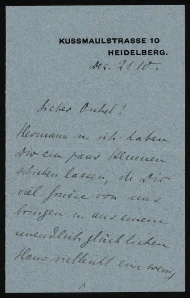 KUSSMAULSTRASSE 10
HEIDELBERG.
Dez. 21. 10.
Lieber Onkel!
Hermann u. ich haben
Dir ein paar Blumen
schicken lassen, die Dir
viel Grüsse von uns
bringen u. aus einem
unendlich glücklichen
Haus vielleicht ein wenig